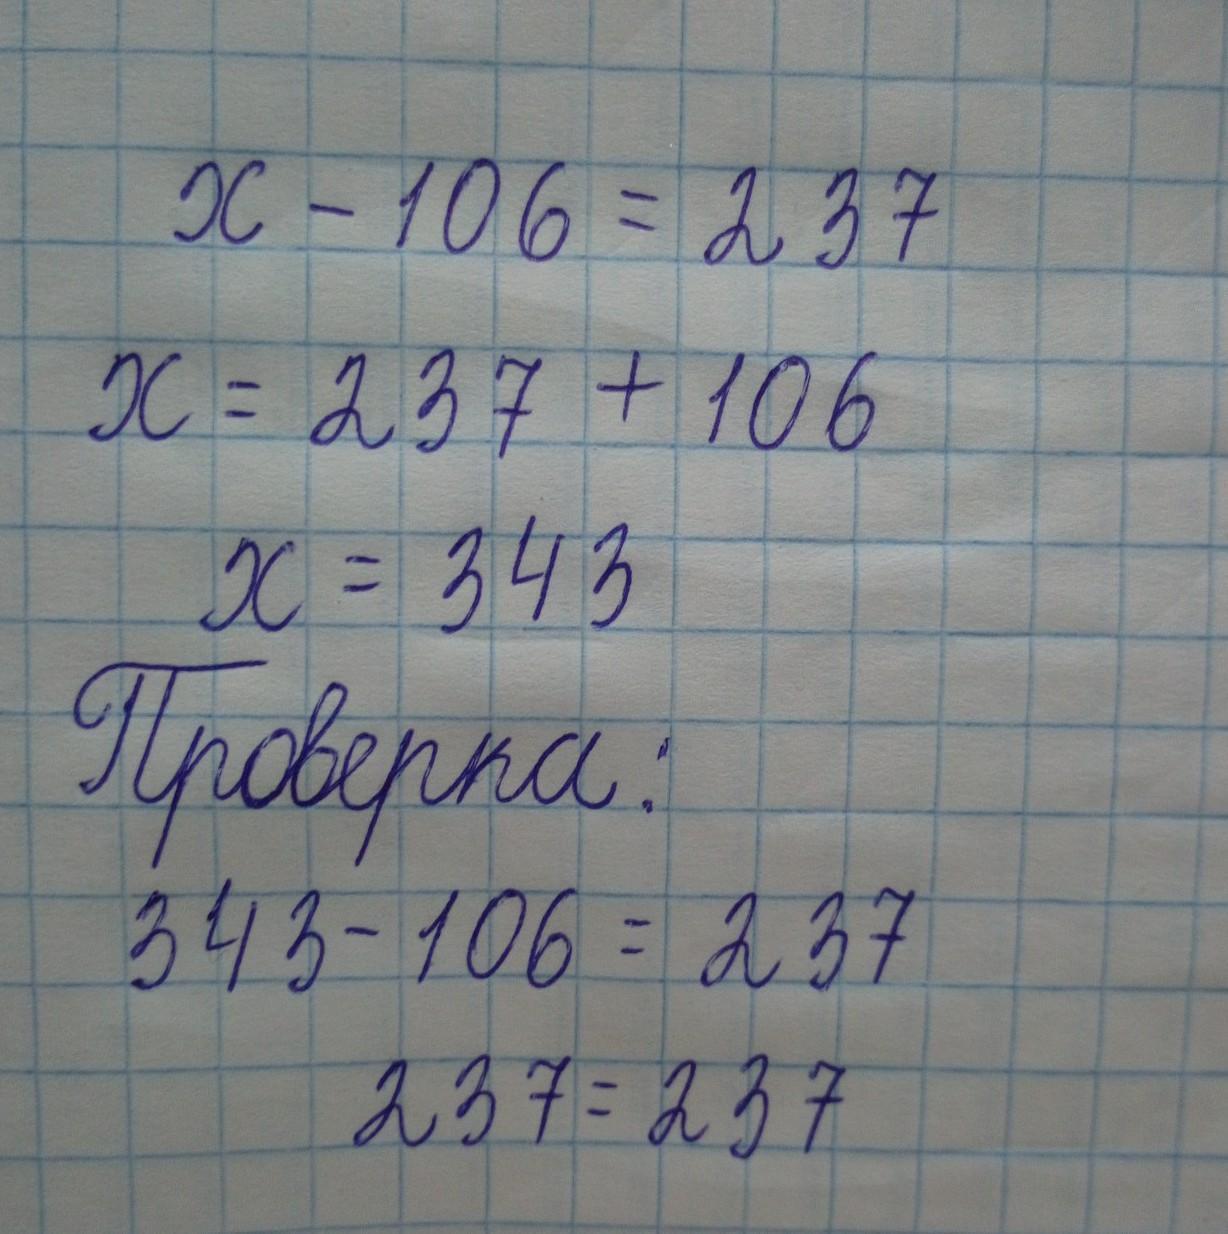 x - 106 = 237
x = 237 + 106
x = 343
Проверка:
343 - 106 = 237
237 = 237